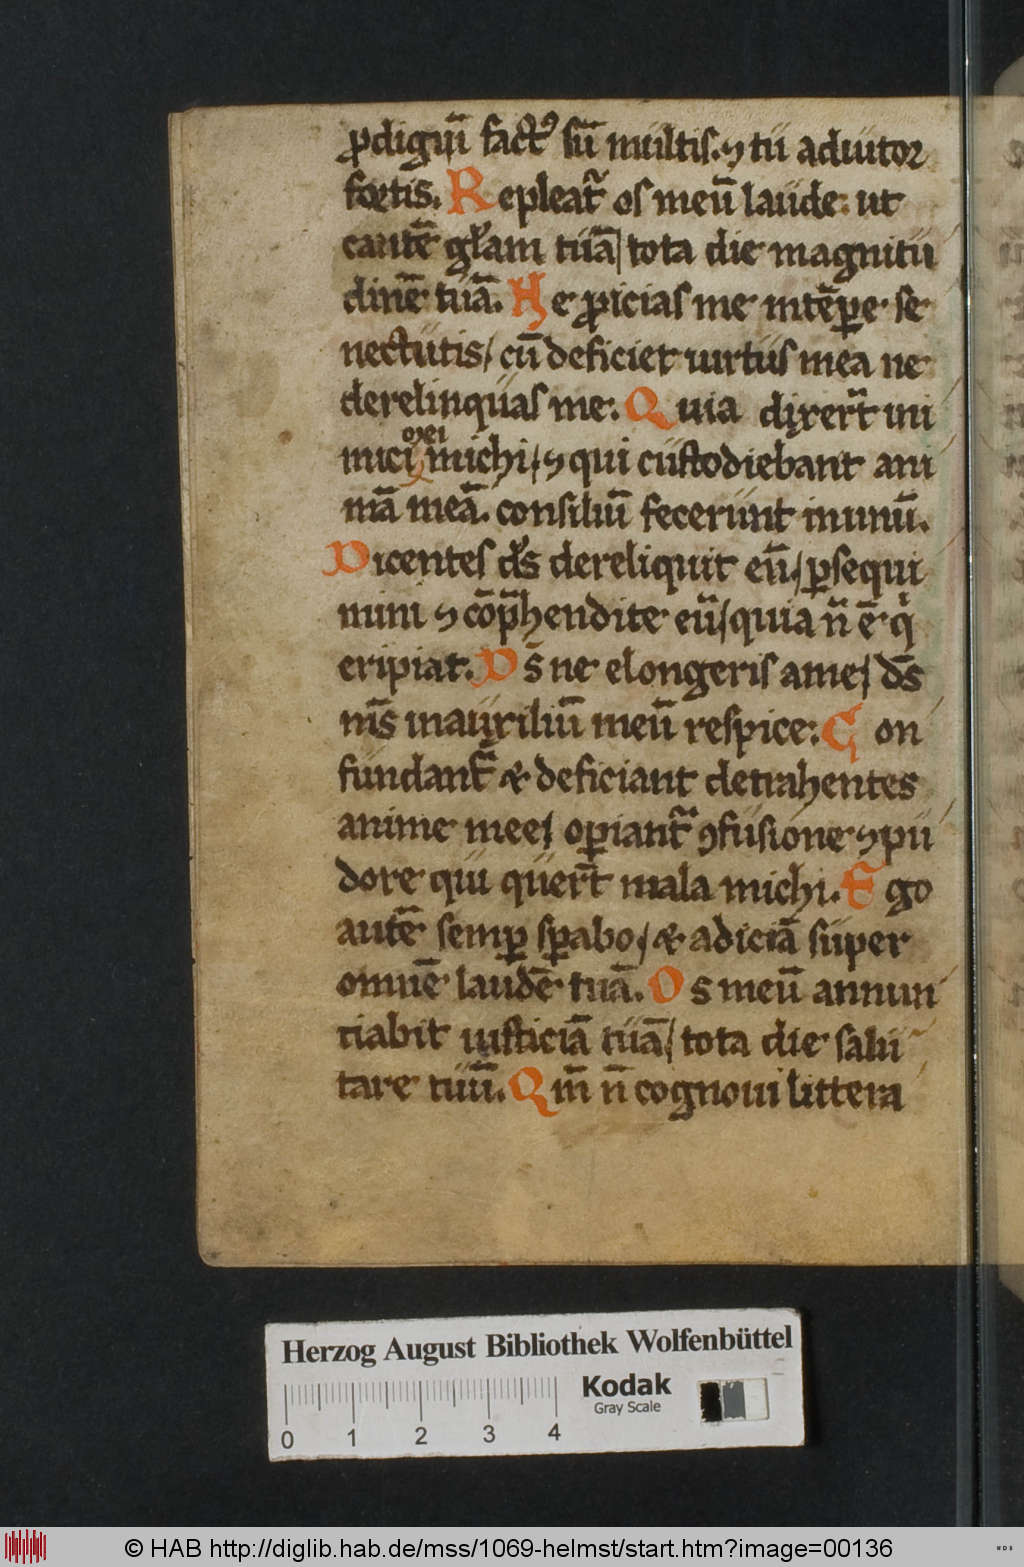 ꝓdigiū factꝰ sū multis. ⁊ tu adiutor
fortis. Repleat᷑ os meū laude. ut
cantē gl̄am tuā / tota die magnitu
dinē tuā. Ne ꝓicias me intēpꝑe se
nectutis / cū defic̄iet uirtus mea ne
derelinquas me. Quia dixer̄t ini
mici mei michi / ⁊ qui custodiebant ani
mā meā. consiliū fecerunt inunū.
Dicentes ds̄ dereliquit eū / ꝑsequi
mini ⁊ cōp̄hendite eū / quia n̄ ē qͥ
eripiat. Ds̄ ne elongeris ame / ds̄
ms̄ inauxiliū meū respice: Con
fundant᷑ & deficiant detrahentes
anime mee / oꝑiant᷑ ꝯfusione ⁊ pu
dore qui quer̄t mala michi. Ego
autē semꝑ sꝑabo / & adiciā super
omnē laudē tuā. Os meū annun
tiabit iusticiā tuā / tota die salu
tare tuū. Qm̄ n̄ cognoui littera
Herzog August Bibliothek Wolfenbüttel
Kodak
Gray Scale
0 1 2 3 4
© HAB http://diglib.hab.de/mss/1069-helmst/start.htm?image=00136